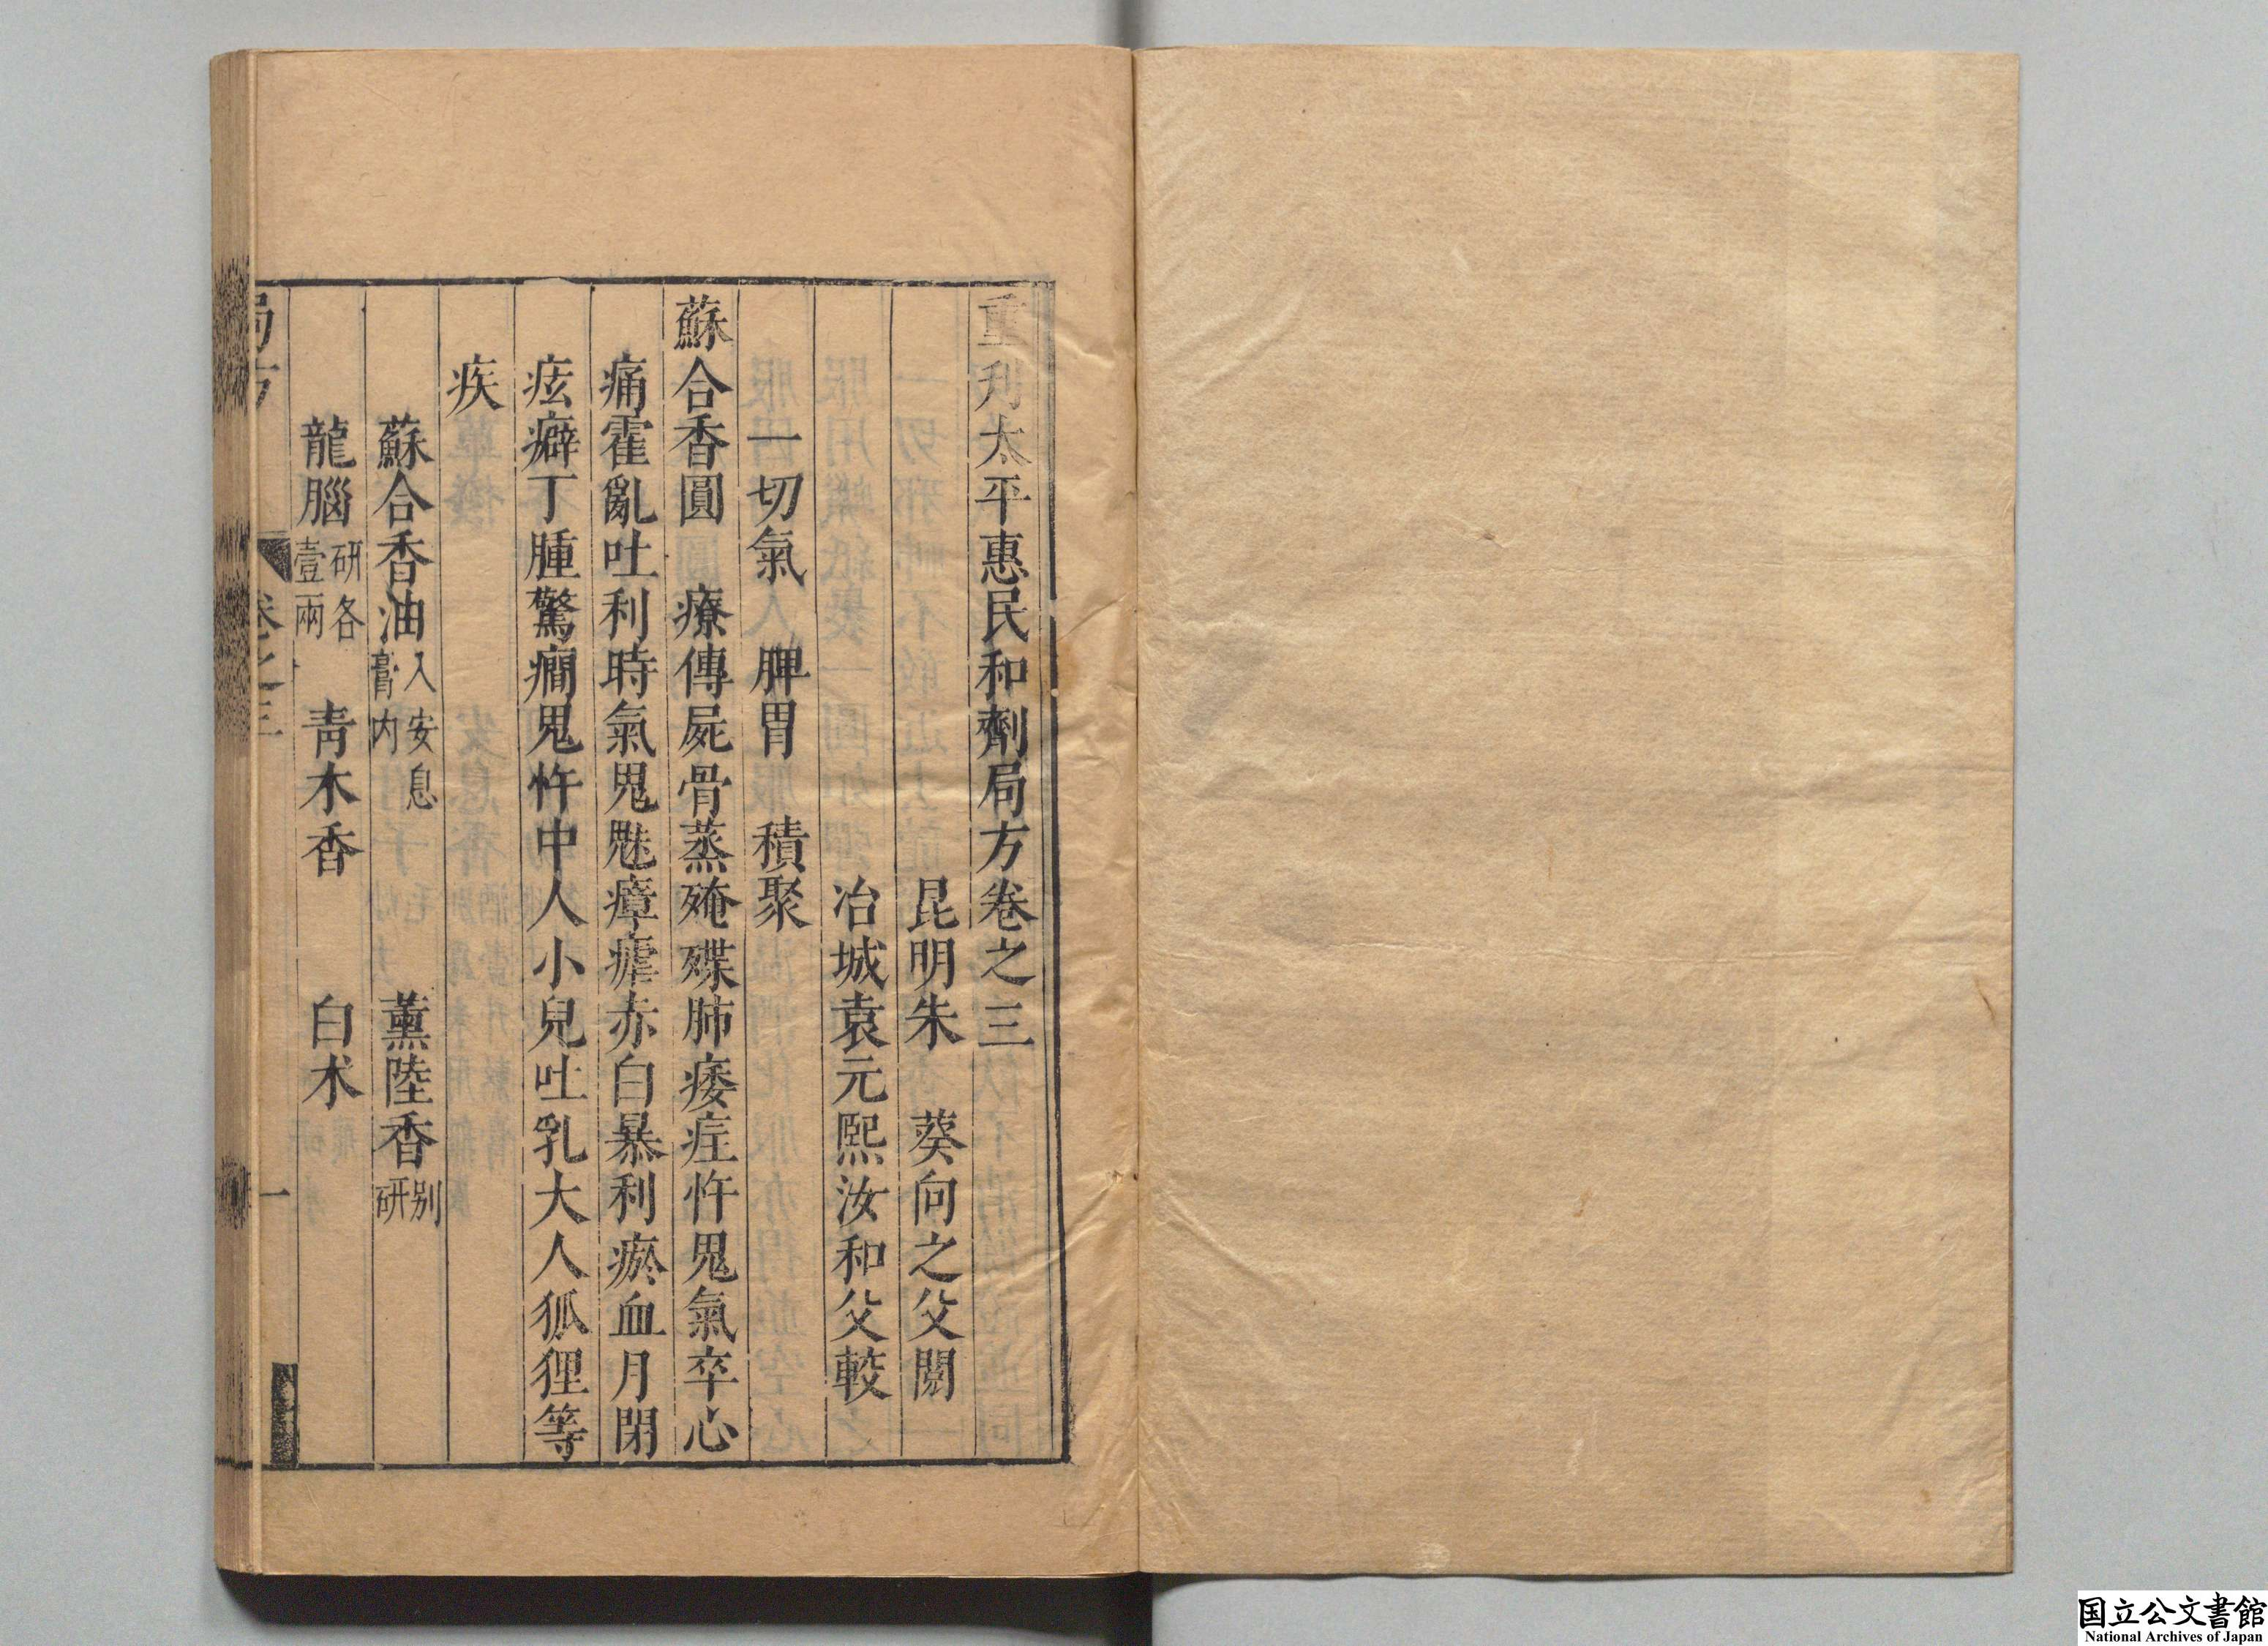 重刋太平惠民和劑局方卷之三
昆明朱　葵向之父閱
冶城袁元熙汝和父較
一切氣　脾胃　積聚
蘇合香圓　療傳屍骨蒸殗殜肺痿疰忤鬼氣卒心
痛霍亂吐利時氣鬼魅瘴瘧赤白暴利瘀血月閉
痃癖丁腫驚癇鬼忤中人小兒吐乳大人狐狸等
疾
蘇合香油入安息膏内　薰陸香别研
龍腦研各壹兩　青木香　白术
局方　卷之三　一
国立公文書館
National Archives of Japan